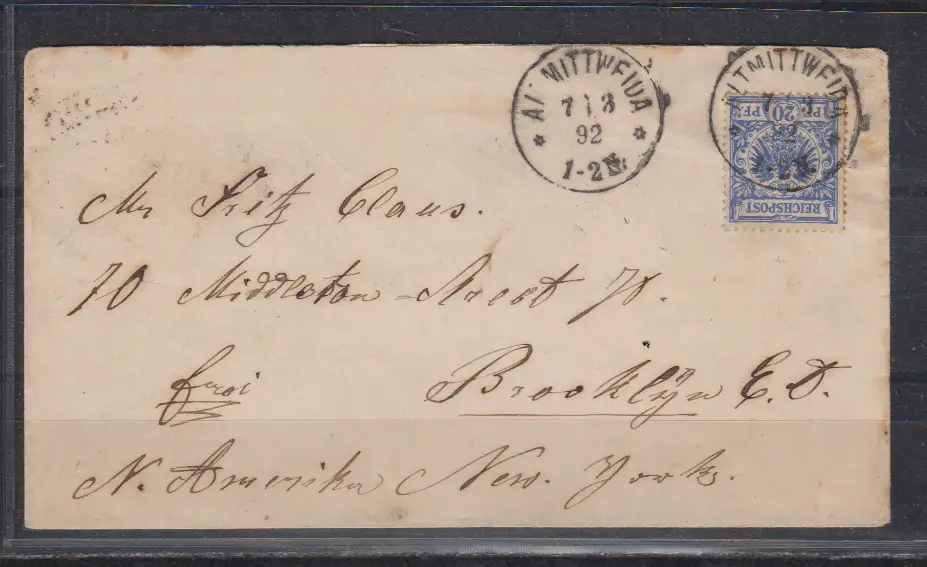 ALTMITTWEIDA
7 3
92
1-2N.
ALTMITTWEIDA
7 3
92
1-2N.
20
PF PF
REICHSPOST
Mr Fritz Claus.
70 Middleton-Street 70.
frei Brooklyn E.D.
N. Amerika New. York.